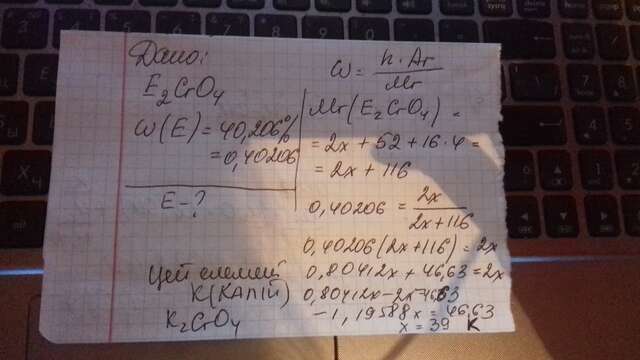 Дано:
E₂CrO₄
W(E) = 40,206%
= 0,40206
E - ?
W = n·Ar / Mr
Mr(E₂CrO₄) =
= 2x + 52 + 16·4 =
= 2x + 116
0,40206 = 2x / 2x+116
0,40206(2x+116) = 2x
0,80412x + 46,63 = 2x
0,80412x - 2x = -46,63
-1,19588x = -46,63
x = 39 K
Цей елемент
K (Калій)
K₂CrO₄